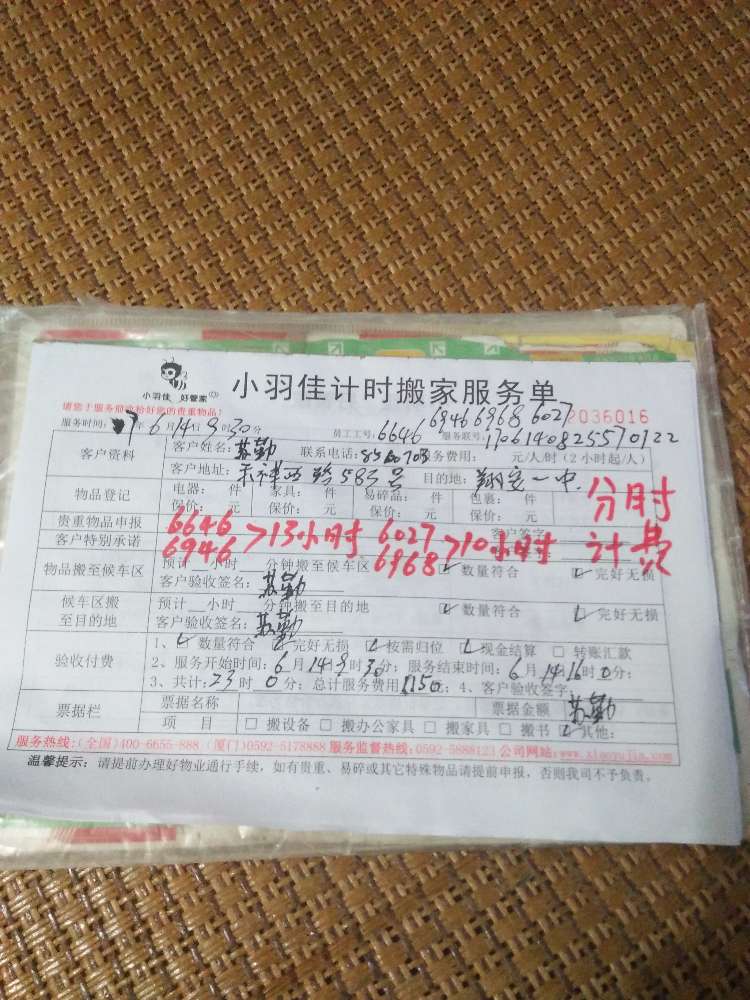 小羽佳 好管家
小羽佳计时搬家服务单
请您于服务前收拾好您的贵重物品!
6946 6968 6027
2036016
服务时间: 17年6月14日8时30分 员工工号: 6646 服务联号: 1706140825570122
客户资料 客户姓名: 苏勤 联系电话: 服务费用: 元/人/时(2小时起/人)
客户地址: 禾祥西路583号 目的地: 翔安一中
物品登记 电器: 件 家具: 件 易碎品: 件 包裹: 件
保价: 元 保价: 元 保价: 元 保价: 元
分时计费
贵重物品申报
客户特别承诺 客户签字
6646 6946 >13小时 6027 6968 >10小时
物品搬至候车区 预计 小时 分钟搬至候车区 ☑ 数量符合 ☑ 完好无损
客户验收签名: 苏勤
候车区搬至目的地 预计 小时 分钟搬至目的地 ☑ 数量符合 ☑ 完好无损
客户验收签名: 苏勤
验收付费 1、☑ 数量符合 ☑ 完好无损 ☑ 按需归位 ☑ 现金结算 □ 转账汇款
2、服务开始时间: 6月14日8时30分; 服务结束时间: 6月14日16时0分;
3、共计: 23时0分; 总计服务费用 1150 4、客户验收签字: 苏勤
票据栏 票据名称 票据金额
项 目 □ 搬设备 □ 搬办公家具 □ 搬家具 □ 搬书 ☑ 其他:
服务热线: (全国)400-6655-888 (厦门)0592-5178888 服务监督热线:0592-5888123 公司网站:www.xiaoyujia.com
温馨提示: 请提前办理好物业通行手续, 如有贵重、易碎或其它特殊物品请提前申报, 否则我司不予负责。